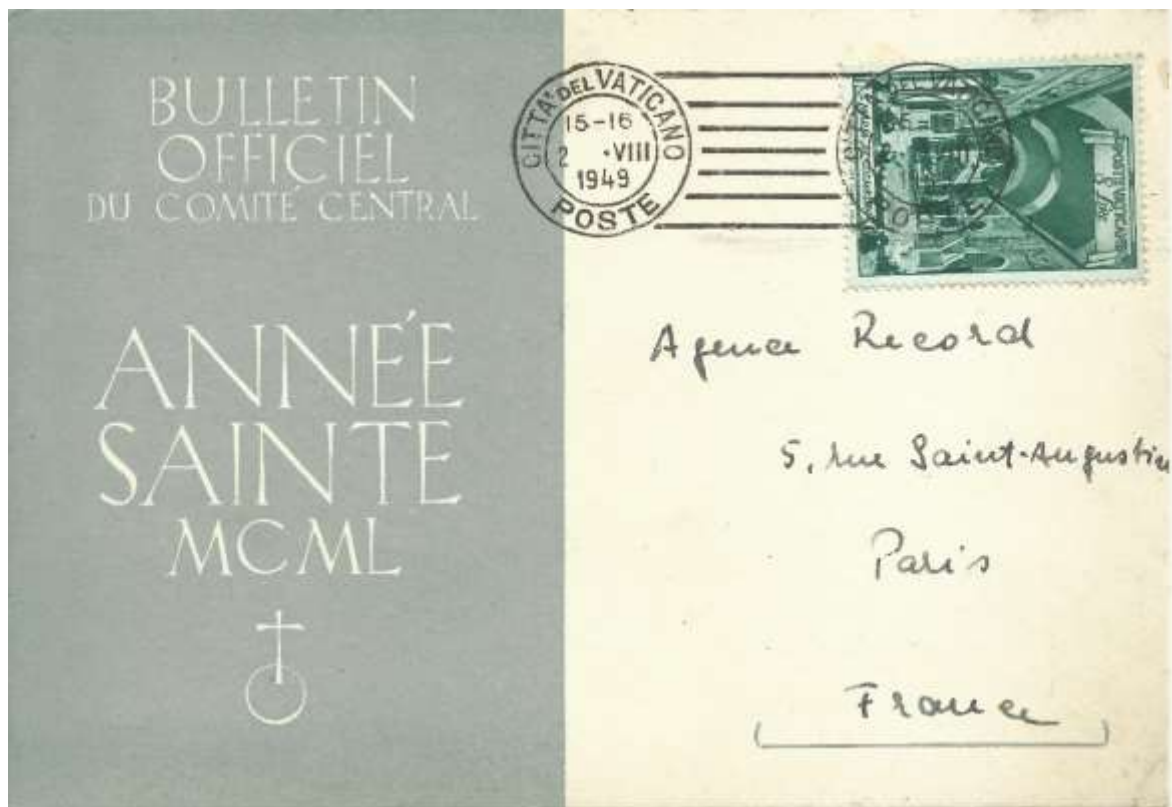 BULLETIN
OFFICIEL
DU COMITÉ CENTRAL
ANNÉE
SAINTE
MCML
CITTA' DEL VATICANO
15-16
2 ·VIII
1949
POSTE
Agence Record
5, rue Saint-Augustin
Paris
France